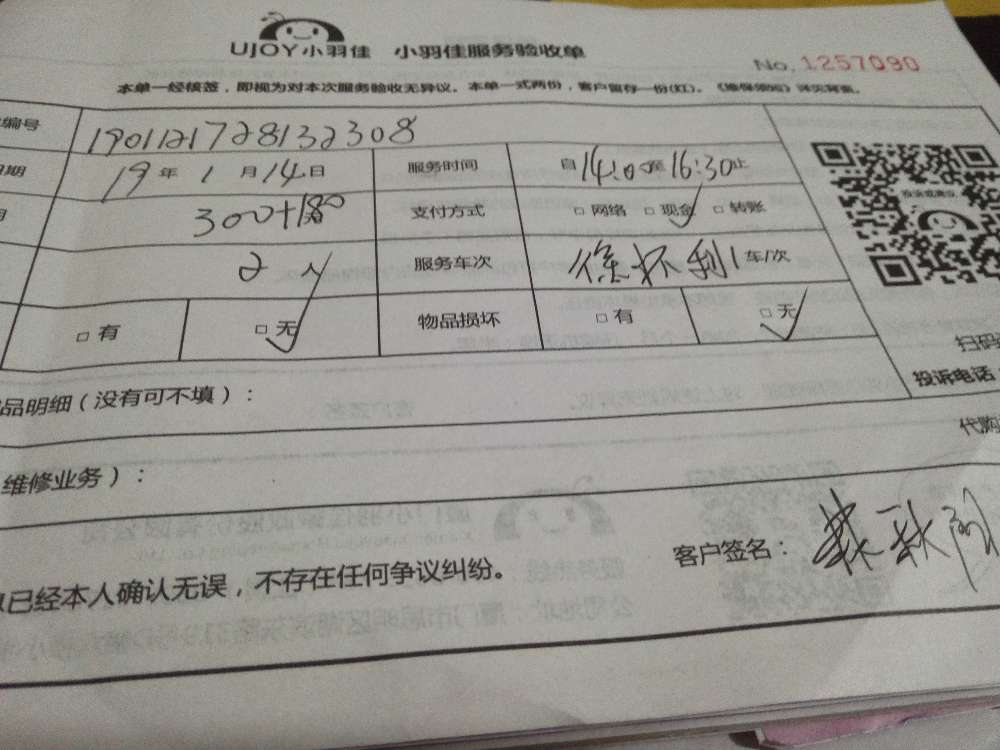 UJOY小羽佳 小羽佳服务验收单
No. 1257090
本单一经核签，即视为对本次服务验收无异议。本单一式两份，客户留存一份(红)。《维保须知》详见背面。
编号 190121728132308
日期 19年1月14日 服务时间 自14:00至16:30止
300+180 支付方式 □网络 □现金 □转账
投诉或建议
2人 服务车次 1车/次
□有 □无 物品损坏 □有 □无
扫码
投诉电话
品明细（没有可不填）：
代购
维修业务）：
已经本人确认无误，不存在任何争议纠纷。
客户签名：